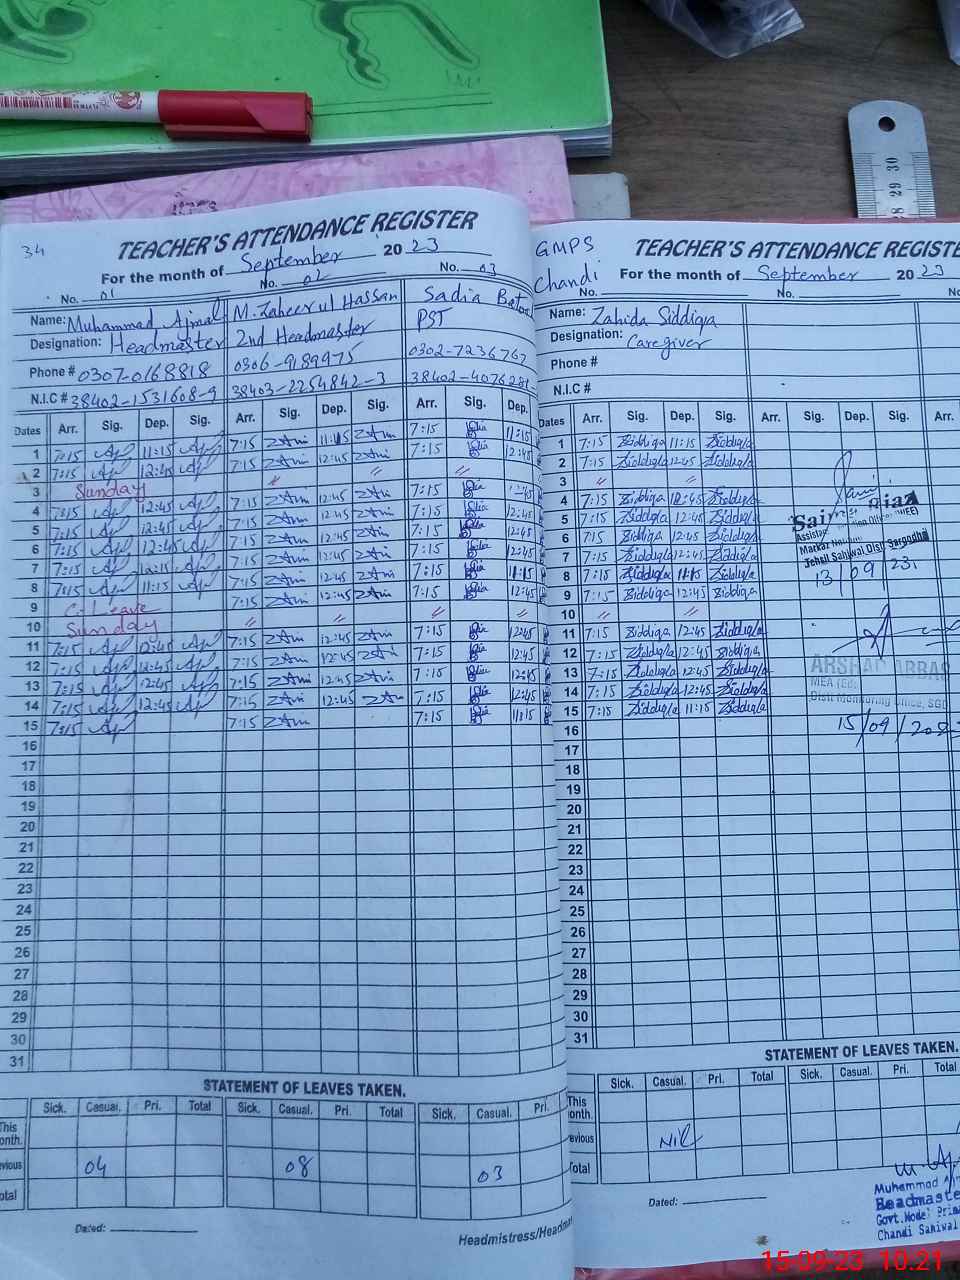 34
TEACHER'S ATTENDANCE REGISTER
For the month of September 2023
No. 01 No. 02 No. 03
Name: Muhammad Ajmal M. Zaheer ul Hassan Sadia
Designation: Headmaster 2nd Headmaster PST
Phone # 0307-0168818 0306-9189975 0302-7236767
N.I.C # 38402-1531608-9 38403-2254842-3 38402-4076281-
Dates Arr. Sig. Dep. Sig. Arr. Sig. Dep. Sig. Arr. Sig. Dep.
1 7:15 11:15 7:15 11:15 7:15 11:15
2 7:15 12:45 7:15 12:45 7:15 12:45
3 Sunday " " "
4 7:15 12:45 7:15 12:45 7:15
5 7:15 12:45 7:15 12:45 7:15 12:45
6 7:15 12:45 7:15 12:45 7:15 12:45
7 7:15 7:15 12:45 7:15 12:45
8 7:15 11:15 7:15 12:45 7:15 11:15
9 C. Leave 7:15 12:45 7:15 12:45
10 Sunday " " " "
11 7:15 12:45 7:15 12:45 7:15 12:45
12 7:15 12:45 7:15 12:45 7:15 12:45
13 7:15 12:45 7:15 12:45 7:15 12:45
14 7:15 12:45 7:15 12:45 7:15 12:45
15 7:15 7:15 7:15 11:15
16
17
18
19
20
21
22
23
24
25
26
27
28
29
30
31
STATEMENT OF LEAVES TAKEN.
Sick. Casual. Pri. Total Sick. Casual. Pri. Total Sick. Casual. Pri.
This
onth.
evious 04 08 03
otal
Dated:
Headmistress/Headma
GMPS
Chandi
TEACHER'S ATTENDANCE REGISTE
For the month of September 2023
No. No. No
Name: Zahida Siddiqa
Designation: Caregiver
Phone #
N.I.C #
Dates Arr. Sig. Dep. Sig. Arr. Sig. Dep. Sig. Arr.
1 7:15 Siddiqa 11:15 Siddiqa
2 7:15 Siddiqa 12:45 Siddiqa
3 " "
4 7:15 Siddiqa 12:45 Siddiqa
5 7:15 Siddiqa 12:45 Siddiqa
6 7:15 Siddiqa 12:45 Siddiqa
7 7:15 Siddiqa 12:45 Siddiqa
8 7:15 Siddiqa 11:15 Siddiqa
9 7:15 Siddiqa 12:45 Siddiqa
10 " "
11 7:15 Siddiqa 12:45 Siddiqa
12 7:15 Siddiqa 12:45 Siddiqa
13 7:15 Siddiqa 12:45 Siddiqa
14 7:15 Siddiqa 12:45 Siddiqa
15 7:15 Siddiqa 11:15 Siddiqa
16
17
18
19
20
21
22
23
24
25
26
27
28
29
30
31
Riaz
Tehsil Sahiwal Distt Sargodha
13/09/23.
ARSHAD ABBAS
MEA
Distt Monitoring Office, SGD
15/09/202
STATEMENT OF LEAVES TAKEN.
Sick. Casual. Pri. Total Sick. Casual. Pri. Total
This
onth.
evious Nil
Total
Dated:
Muhammad
Headmaste
Govt. Model Prim
Chandi Sahiwal
28 29 30
15-09-23 10:21